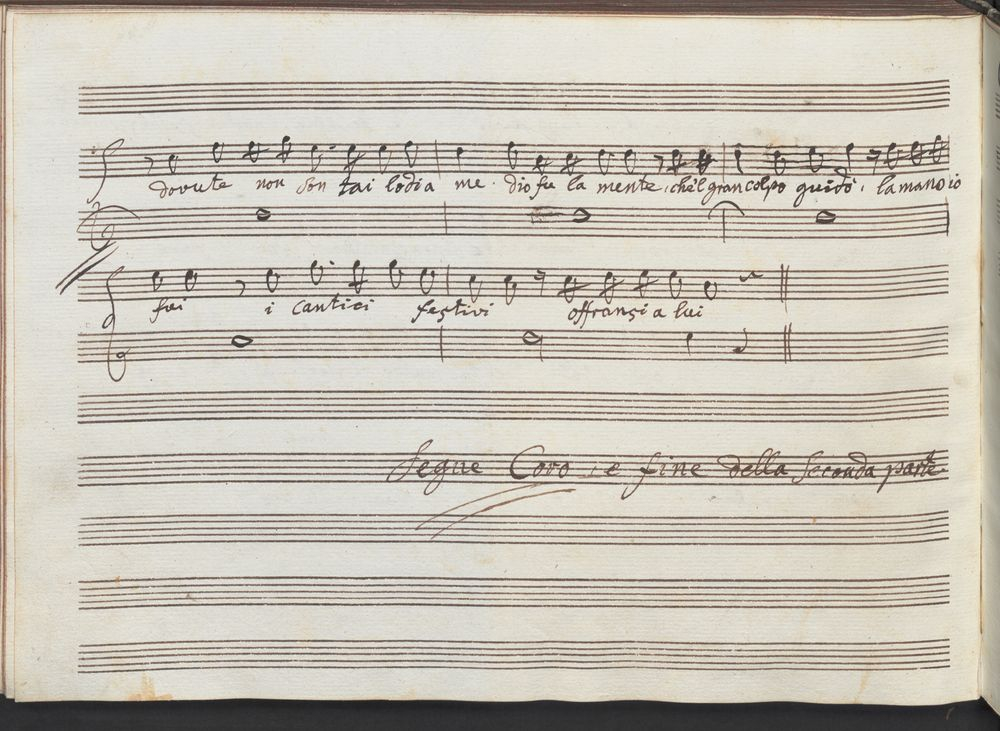 dovute non son tai lodi a me. dio fu la mente, che'l gran colpo guidò, la mano io
fui i cantici festivi offransi a lui
Segue Coro, e fine della Seconda parte